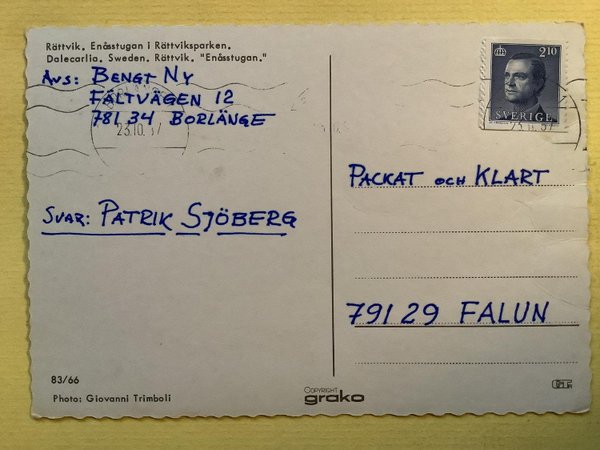 Rättvik. Enåsstugan i Rättviksparken.
Dalecarlia. Sweden. Rättvik. "Enåsstugan."
Avs: BENGT NY
FÄLTVÄGEN 12
781 34 BORLÄNGE
23.10.87
2 10
SVERIGE
PACKAT OCH KLART
SVAR: PATRIK SJÖBERG
791 29 FALUN
83/66
Photo: Giovanni Trimboli
COPYRIGHT
grako